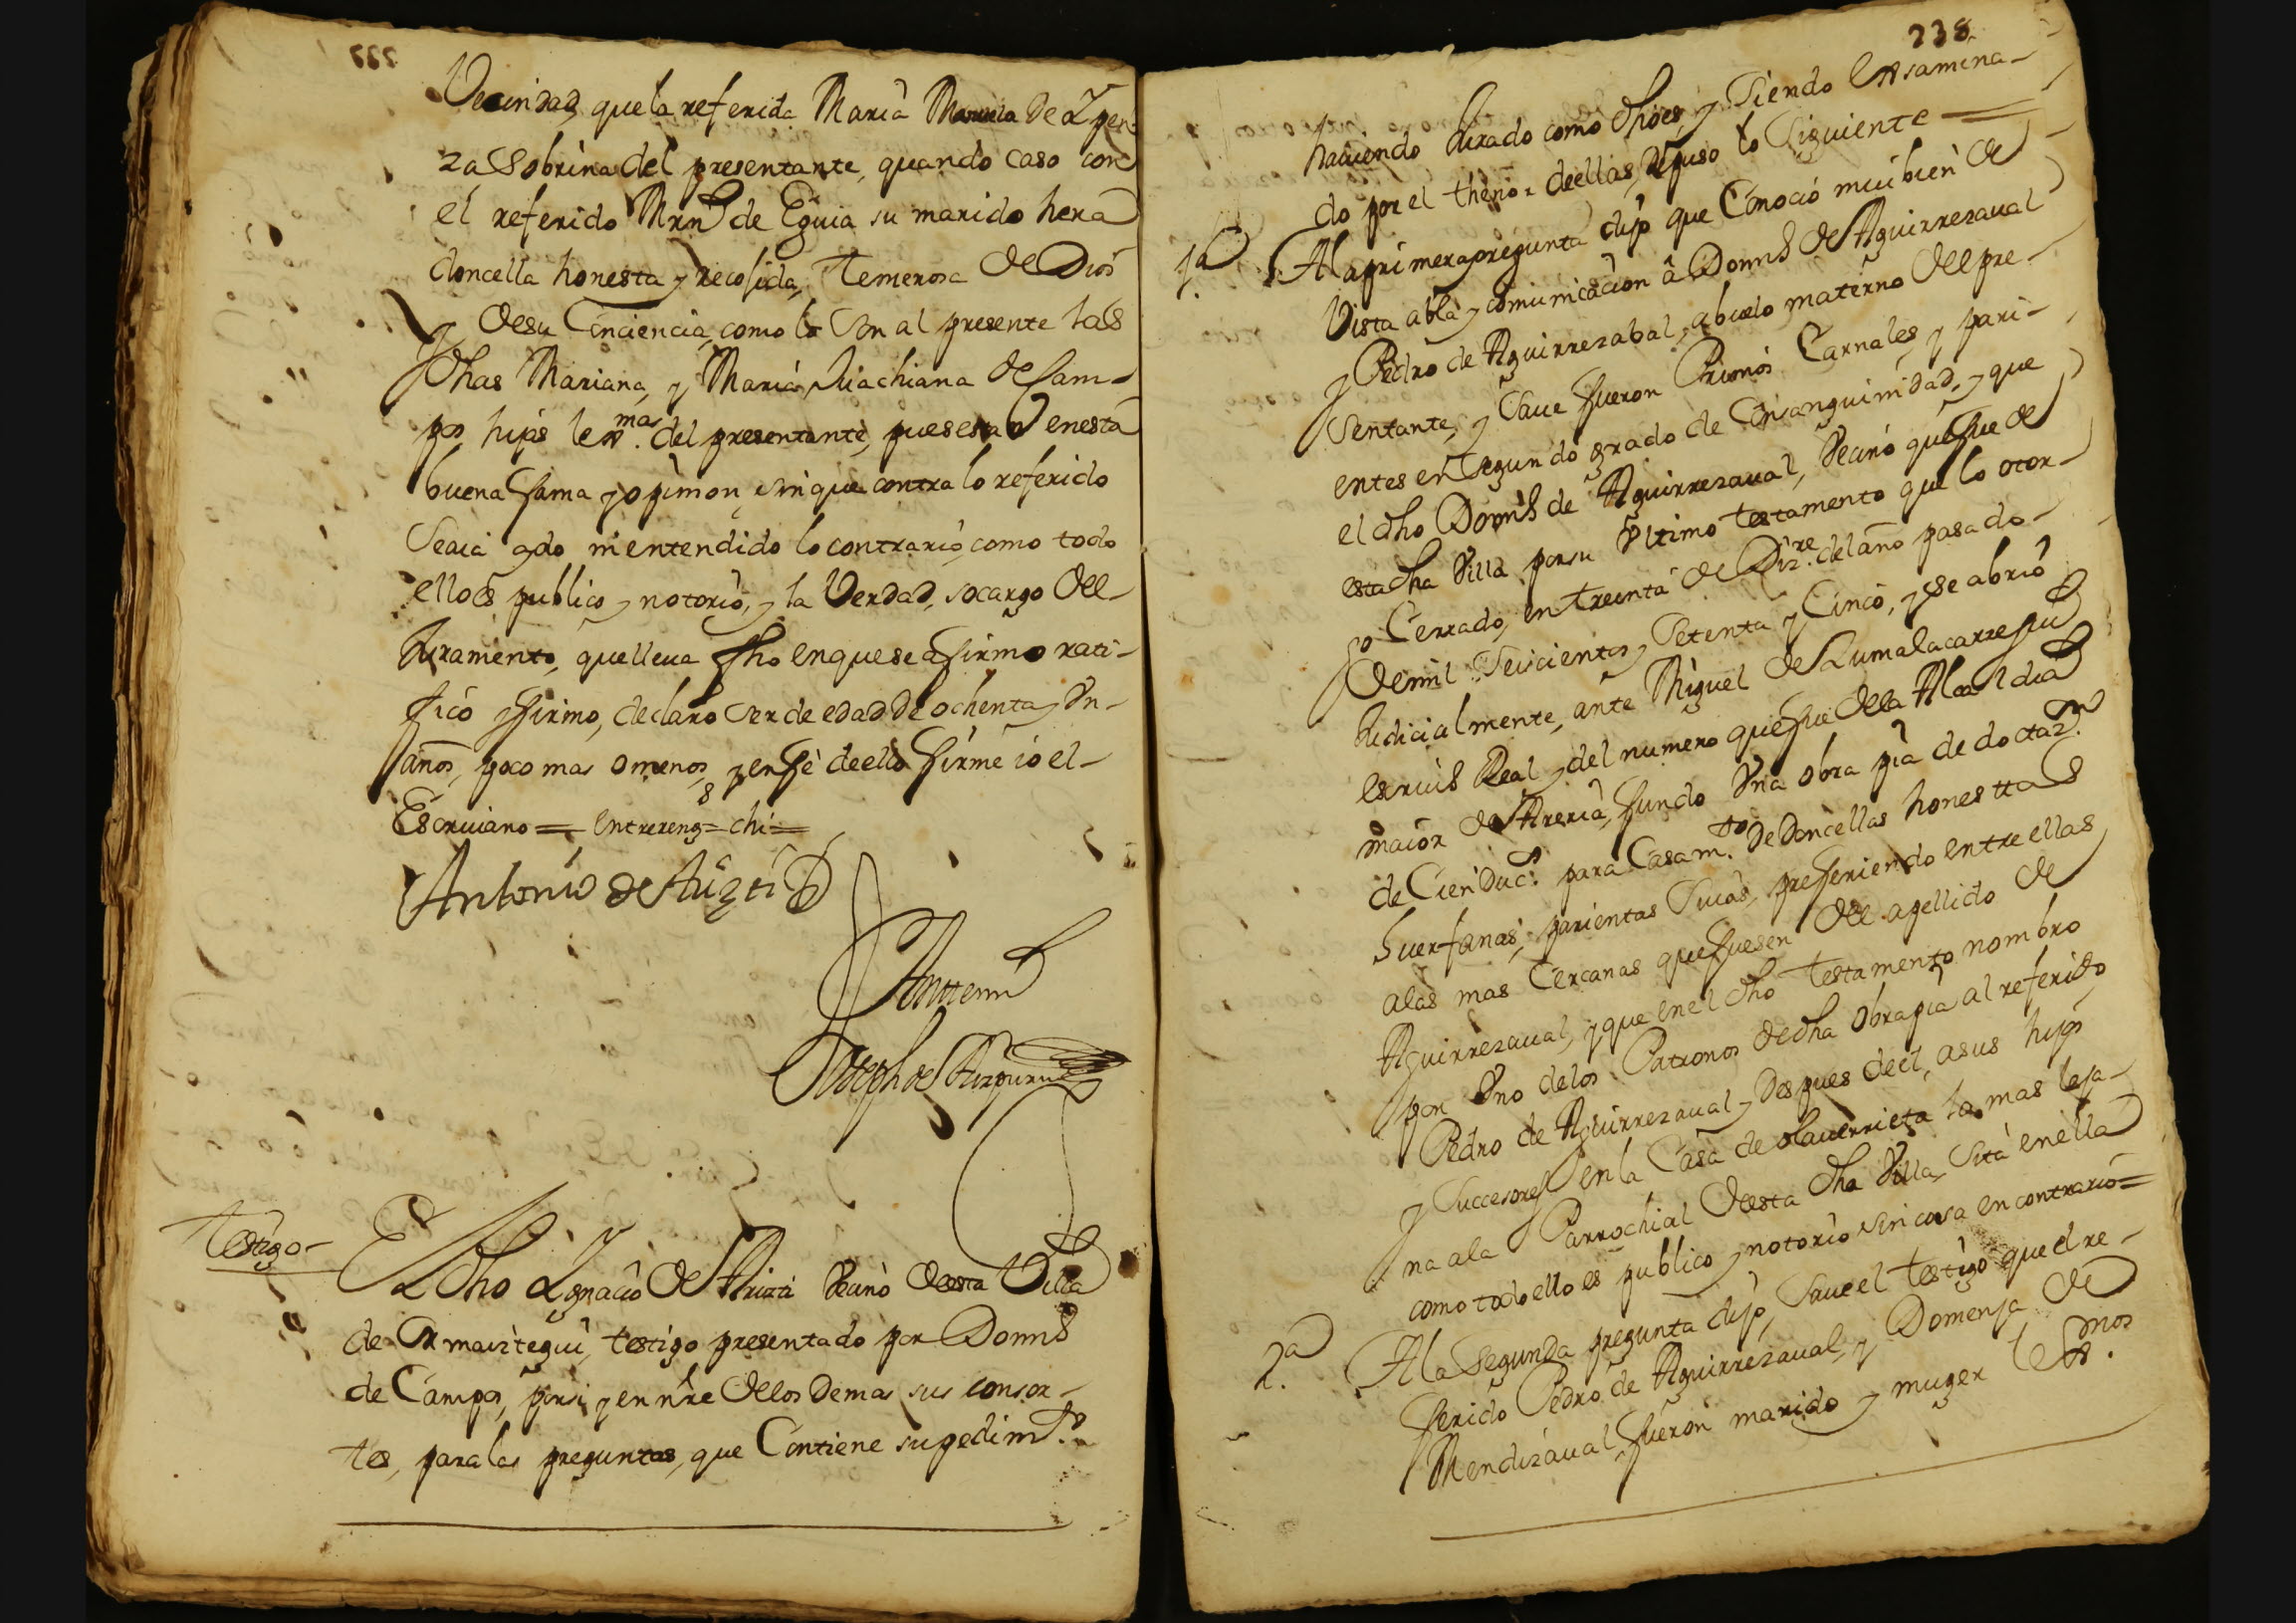 Vecindad, que la referida Maria Manuela de Ypen
za Sobrina del presentante, quando caso con
el referido Mrn de Eguia su marido hera
doncella honesta y recojida, Temerosa de Dios
y de su Conciencia, como lo Son al presente las
dhas Mariana, y Maria Juachiana de Cam-
pos hijas lexmas. del presentante, pues estan en esta
buena fama y opinion, sin que contra lo referido
Seaia oydo ni entendido lo contrario, como todo
ello es publico y notorio, y la Verdad, socargo del
Juramento, que lleua fho en que se afirmo rati-
fico y firmo, declaro ser de edad de ochenta y Un-
años, poco mas o menos, y en fè de ello firmè io el-
Escriuano = Entrereng.s = chi =
Antonio de Auzti
Anttemi
Joseph de Aizpurua
237
Testigo-
El dho Ygnacio de Ariztti Vecino de esta Villa
de Ormaiztegui, testigo presentado por Domns
de Campos, por si, y en nre de los Demas sus consor-
tes, para las preguntas, que Contiene su pedimto.
238
hauiendo Jurado como dho es, y Siendo Exsamina-
do por el thenor de ellas, depuso lo Siguiente =
1.a A la primera pregunta dijo que Conoció mui bien de
Vista abla y comunicacion â Domns de Aguirrezaual
y Pedro de Aguirrezabal, abuelo materno del pre-
sentante, y Saue fueron Primos Carnales, y pari-
entes en segundo grado de Consanguinidad, y que
el dho Domns de Aguirrezaual, Vecino que fue de
esta dha Villa por su Vltimo testamento que lo otor-
go Cerrado, en treinta de Dizre. del año pasado-
de mil Seiscientos y Setenta y Cinco, y se abrió
Judicialmente, ante Miguel de Zumalacarregui
esriuo Real y del numero que fue de la Alcaldia
maior de Areria, fundo Vna obra pia de dotaz.n
de Cien Duc.s para Casam.to de Doncellas honesttas
huerfanas, parientas Suias, prefiriendo entre ellas
a las mas Cercanas que fuesen del apellido de
Aguirrezaual, y que en el dho testamento nombro
por Vno de los Patronos de dha obra pia al referido
Pedro de Aguirrezaual y Despues de el, a sus hijos
y Succesores en la Casa de olauerrieta la mas leja-
na a la Parrochial de esta dha Villa, Sita en ella
como todo ello es publico y notorio sin cosa en contrario =
2.a A la Segunda pregunta dijo, Saue el testigo que el re-
ferido Pedro de Aguirrezaual, y Domenja de
Mendizaual, fueron marido y muger lexmos.